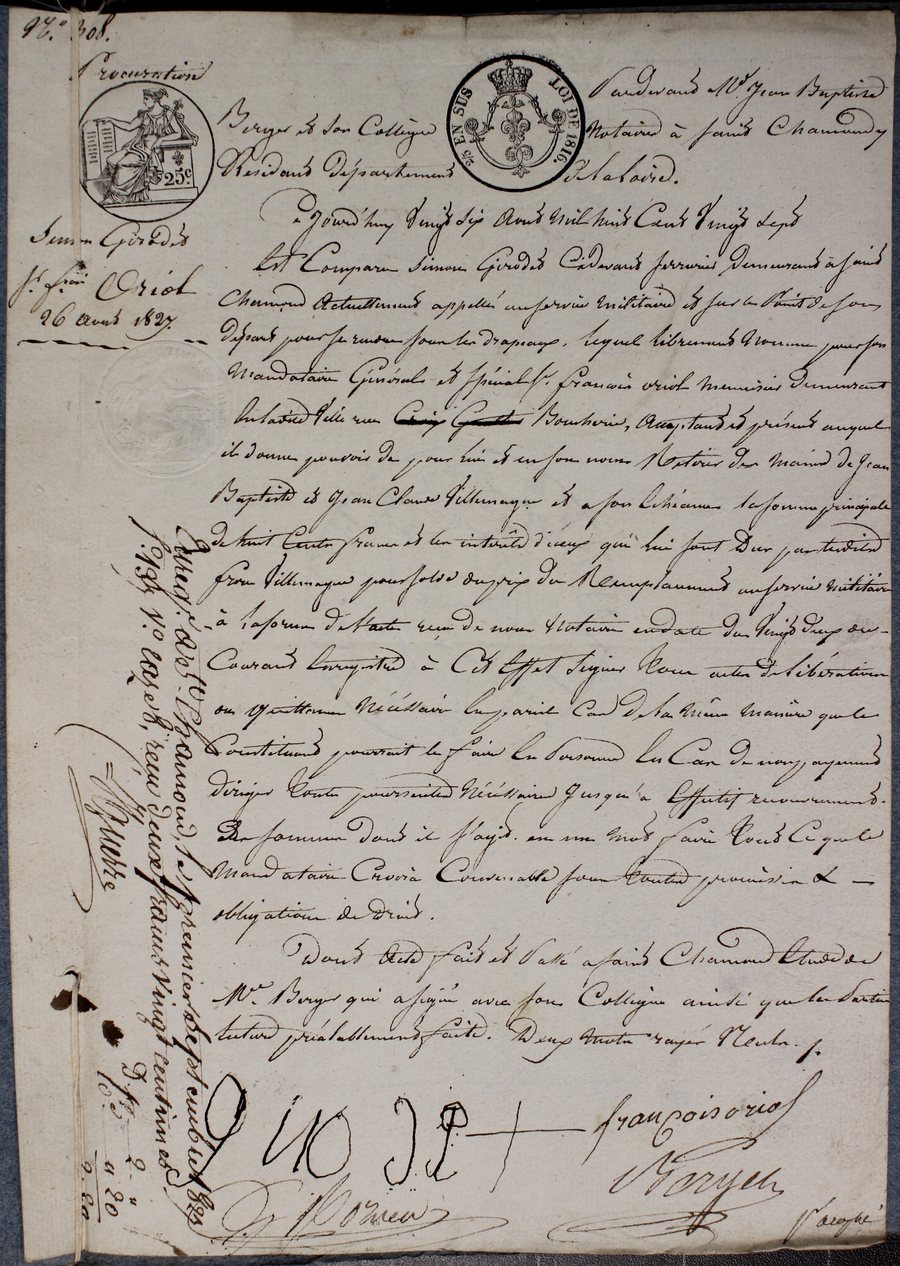 N.° 308.
Procuration
25c
2/5 EN SUS LOI DE 1816.
Simon Girodet
Sr. fran. Oriol
26 Aout 1827.
Pardevant Me. Jean Baptiste
Berger et son Collègue Notaires à Saint Chamond,
Résidant département de la Loire.
Ce Jourd'huy Vingt Six Aout Mil huit Cent Vingt Sept
Est Comparu Simon Girodet Cidevant ferrurier Demeurant à Saint
Chamond Actuellement appellé au service Militaire et sur le Point de son
départ pour se rendre sous les drapeaux. lequel librement Nomme pour son
Mandataire Générale et Spécial Sr. françois oriol Menuisier demeurant
en la dite Ville rue Boucherie, Acceptant et présent auquel
il donne pouvoir de pour lui et en son nom Retirer des mains de Jean
Baptiste et Jean Claude Villemagne et a son Echéance la somme principale
de huit Cents francs et les intérêts d'iceux qui lui sont Dus par lesdits
freres Villemagne pour solde du prix du Remplacement au service Militaire
à la forme de l'acte reçu de nous Notaire en date du Vingt deux du
Courant Enregistré à Cet Effet Signer Tous actes de libération
ou quittance Nécéssaire En pareil Cas de la Même manière que le
Constituant pourrait le faire En Personne En Cas de non payement
diriger Toute poursuites Nécéssaire Jusqu'a Effectif recouvrement.
Des sommes dont il s'agit. en un mot faire Tout Ce que le
Mandataire Croira Convenable sous Toutes promission & —
obligations de Droit.
Dont Acte fait et Passé a Saint Chamond Etude de
Me. Berger qui a signé avec son Collègue ainsi que les Parties
lecture préalablement faite. Deux mots rayés Nuls.
françois oriol
Berger
Enreg. à St. Chamond, le premier Septembre 1827
f° 137 V.° case 6, reçu deux francs vingt centimes
D. fs 2 "
10e " 20
2. 20